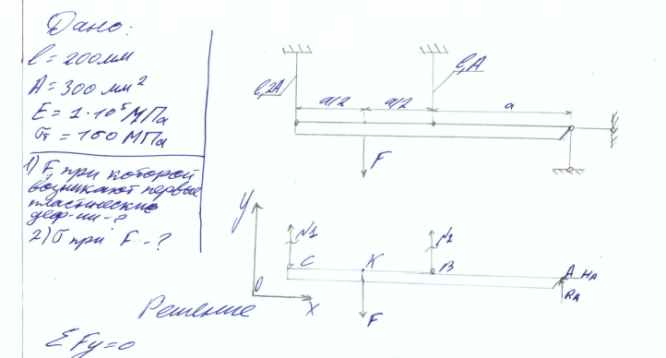 Дано:
l = 200мм
A = 300 мм²
E = 1·10⁵МПа
σт = 160 МПа
1) F, при которой
возникают первые
пластические
деф-ии - ?
2) σ при F - ?
l, 2A
l, A
a/2
a/2
a
F
y
N1
N1
C
K
B
A
HA
RA
0
x
F
Решение
ΣFy=0